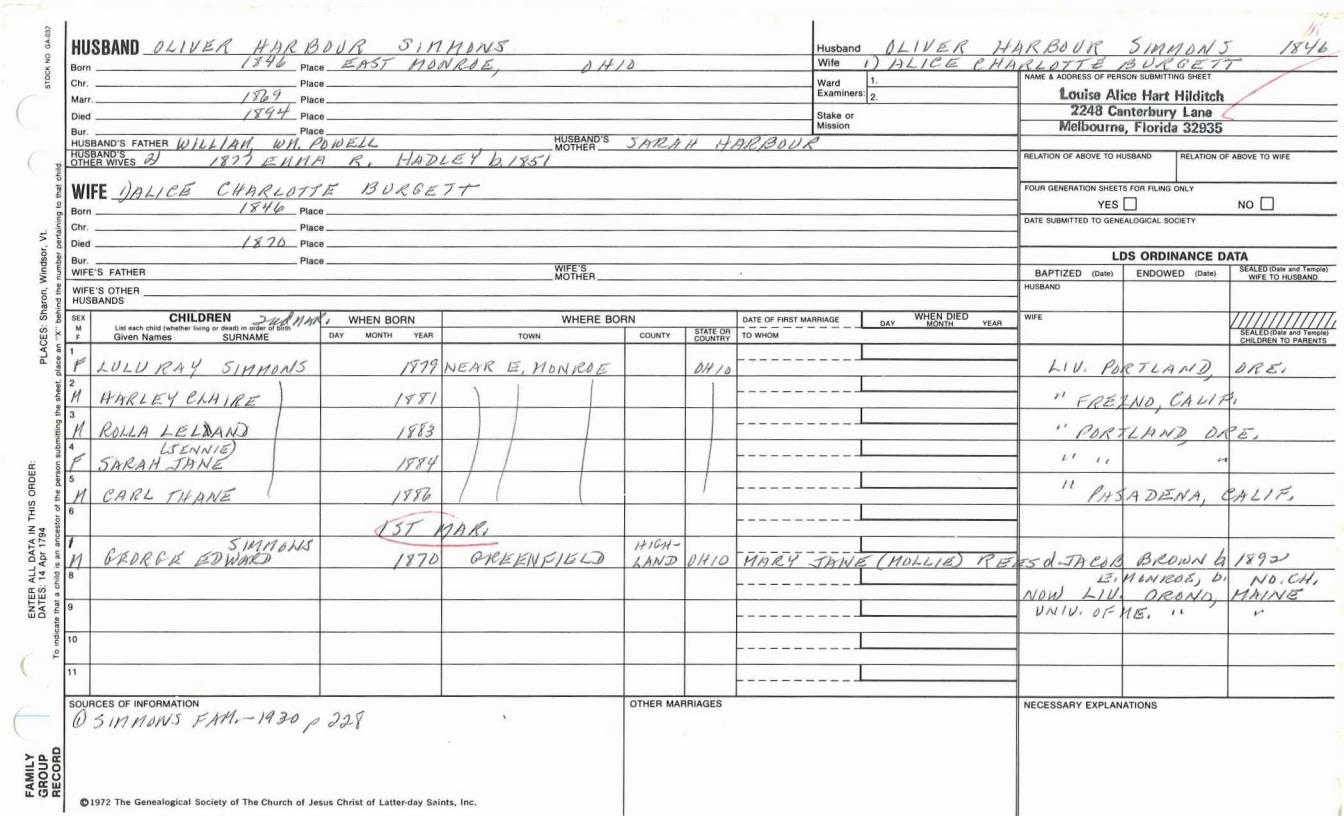 STOCK NO GA-037
PLACES: Sharon, Windsor, Vt.
ENTER ALL DATA IN THIS ORDER:
DATES: 14 Apr 1794
To indicate that a child is an ancestor of the person submitting the sheet, place an "X" behind the number pertaining to that child.
FAMILY
GROUP
RECORD
HUSBAND OLIVER HARBOUR SIMMONS
Born 1846 Place EAST MONROE, OHIO
Chr. Place
Marr. 1869 Place
Died 1894 Place
Bur. Place
HUSBAND'S FATHER WILLIAM, WM. POWELL HUSBAND'S MOTHER SARAH HARBOUR
HUSBAND'S OTHER WIVES 2) 1877 EMMA R. HADLEY b. 1851
Husband OLIVER HARBOUR SIMMONS 1846
Wife 1) ALICE CHARLOTTE BURGETT
Ward Examiners: 1.
2.
Stake or Mission
NAME & ADDRESS OF PERSON SUBMITTING SHEET
Louise Alice Hart Hilditch
2248 Canterbury Lane
Melbourne, Florida 32935
RELATION OF ABOVE TO HUSBAND RELATION OF ABOVE TO WIFE
FOUR GENERATION SHEETS FOR FILING ONLY
YES NO
DATE SUBMITTED TO GENEALOGICAL SOCIETY
WIFE 1) ALICE CHARLOTTE BURGETT
Born 1846 Place
Chr. Place
Died 1870 Place
Bur. Place
WIFE'S FATHER WIFE'S MOTHER
WIFE'S OTHER HUSBANDS
LDS ORDINANCE DATA
BAPTIZED (Date) ENDOWED (Date) SEALED (Date and Temple) WIFE TO HUSBAND
HUSBAND
WIFE
SEALED (Date and Temple) CHILDREN TO PARENTS
SEX M F CHILDREN 2nd MAR. WHEN BORN WHERE BORN DATE OF FIRST MARRIAGE WHEN DIED
List each child (whether living or dead) in order of birth
Given Names SURNAME DAY MONTH YEAR TOWN COUNTY STATE OR COUNTRY TO WHOM DAY MONTH YEAR
1 F LULU RAY SIMMONS 1879 NEAR E. MONROE OHIO LIV. PORTLAND, ORE.
2 M HARLEY CLAIRE 1881 " FREZNO, CALIF.
3 M ROLLA LELAND 1883 " PORTLAND, ORE.
4 (JENNIE)
F SARAH JANE 1884 " " "
5 M CARL THANE 1886 " PASADENA, CALIF.
6 1ST MAR.
1 M GEORGE EDWARD SIMMONS 1870 GREENFIELD HIGH-LAND OHIO MARY JANE (MOLLIE) REES d. JACOB BROWN b 1892
8 E. MONROE, b. NO. CH.
NOW LIV. ORONO, MAINE
9 UNIV. OF ME. " "
10
11
SOURCES OF INFORMATION OTHER MARRIAGES NECESSARY EXPLANATIONS
① SIMMONS FAM.-1930 p 228
©1972 The Genealogical Society of The Church of Jesus Christ of Latter-day Saints, Inc.